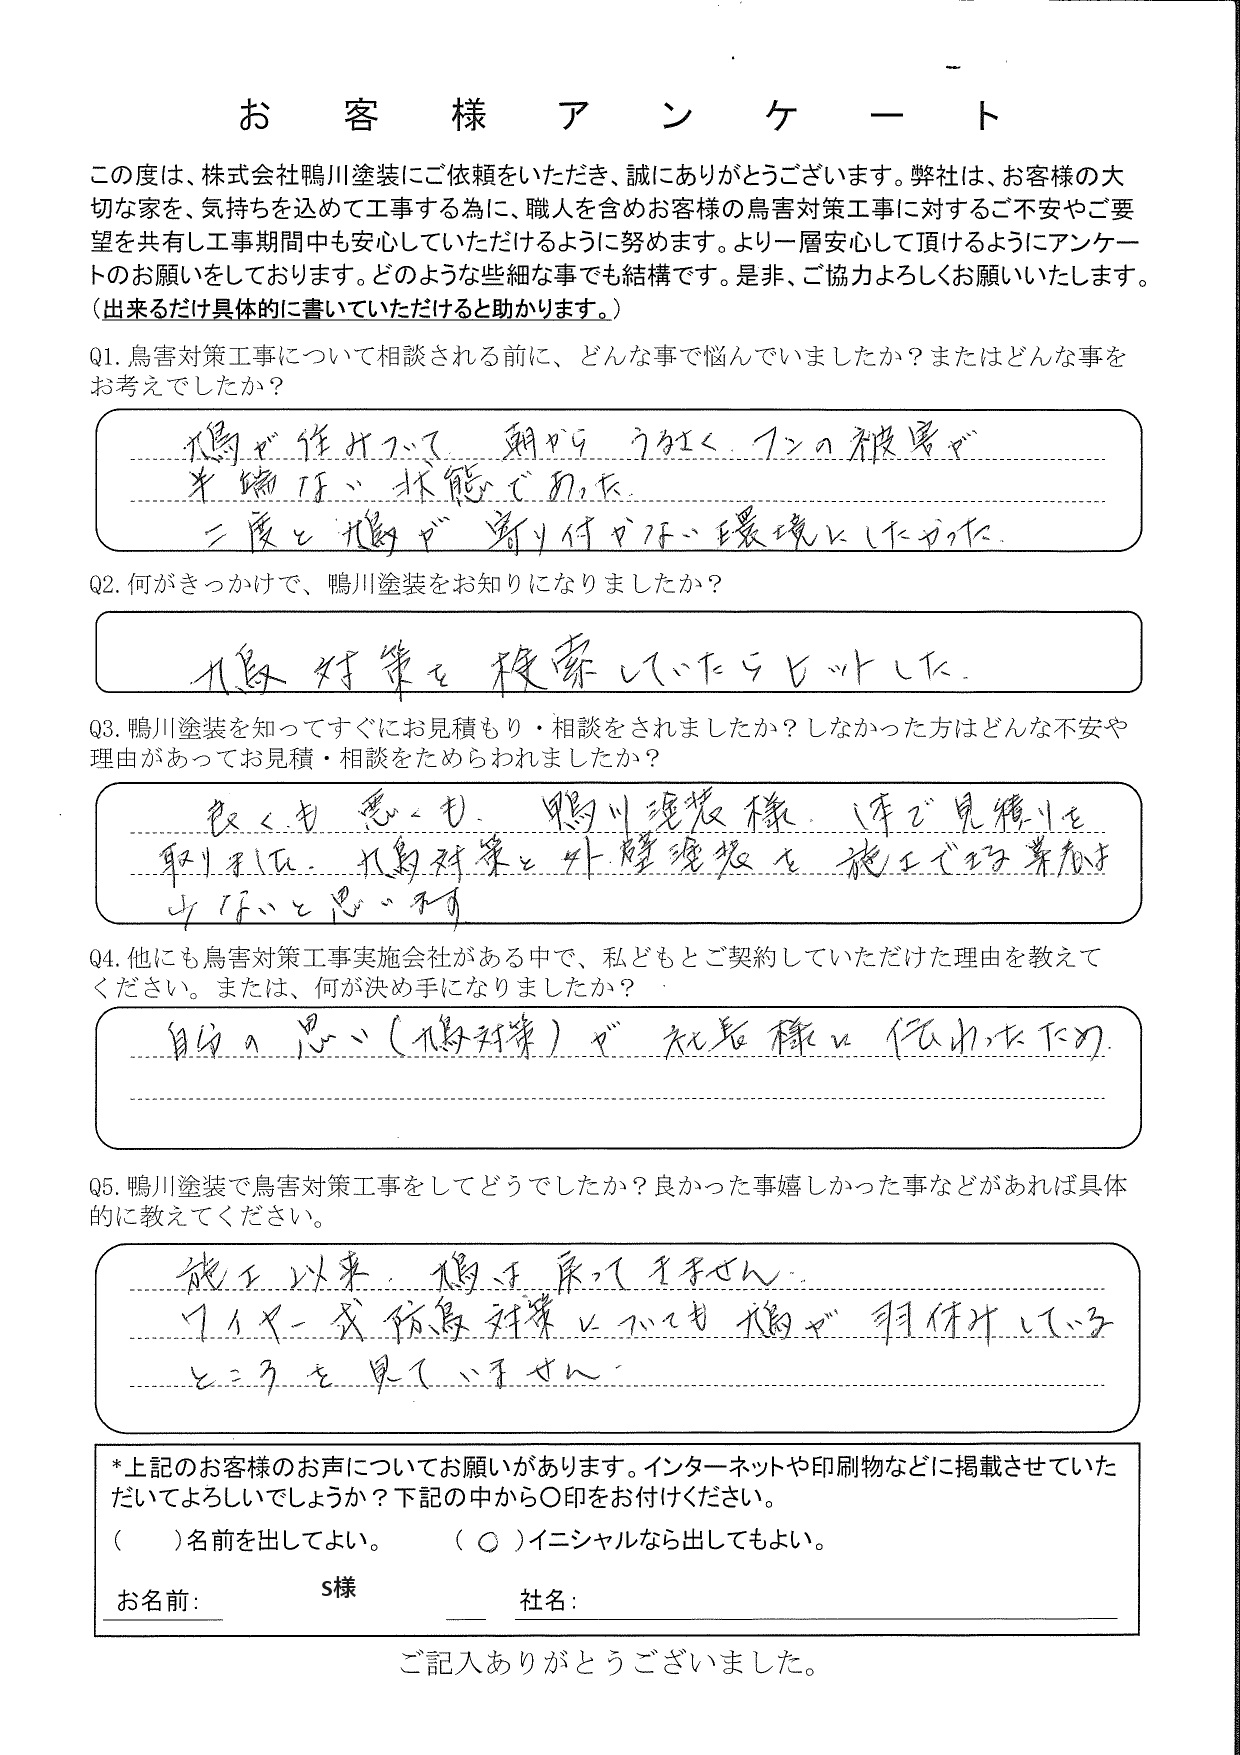 お客様アンケート
この度は、株式会社鴨川塗装にご依頼をいただき、誠にありがとうございます。弊社は、お客様の大
切な家を、気持ちを込めて工事する為に、職人を含めお客様の鳥害対策工事に対するご不安やご要
望を共有し工事期間中も安心していただけるように努めます。より一層安心して頂けるようにアンケー
トのお願いをしております。どのような些細な事でも結構です。是非、ご協力よろしくお願いいたします。
（出来るだけ具体的に書いていただけると助かります。）
Q1. 鳥害対策工事について相談される前に、どんな事で悩んでいましたか？またはどんな事を
お考えでしたか？
鳩が住みついて 朝から うるさく. フンの被害が
半端ない状態であった.
二度と鳩が寄り付かない環境にしたかった.
Q2. 何がきっかけで、鴨川塗装をお知りになりましたか？
鳩対策を検索していたらヒットした.
Q3. 鴨川塗装を知ってすぐにお見積もり・相談をされましたか？しなかった方はどんな不安や
理由があってお見積・相談をためらわれましたか？
良くも悪くも. 鴨川塗装様. 1本で見積りを
取りました. 鳩対策と外壁塗装を施工できる業者は
少ないと思います
Q4. 他にも鳥害対策工事実施会社がある中で、私どもとご契約していただけた理由を教えて
ください。または、何が決め手になりましたか？
自分の思い(鳩対策)が社長様に伝わったため.
Q5. 鴨川塗装で鳥害対策工事をしてどうでしたか？良かった事嬉しかった事などがあれば具体
的に教えてください。
施工以来. 鳩は戻ってきません.
ワイヤー式防鳥対策についても鳩が羽休みしている
ところを見ていません.
*上記のお客様のお声についてお願いがあります。インターネットや印刷物などに掲載させていた
だいてよろしいでしょうか？下記の中から○印をお付けください。
（　　）名前を出してよい。　　（ ○ ）イニシャルなら出してもよい。
お名前：　　S様　　社名：
ご記入ありがとうございました。